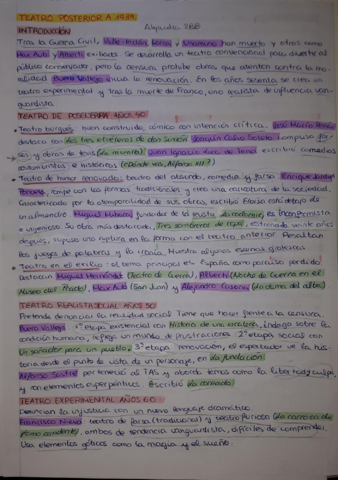 TEATRO POSTERIOR A 1939
Alejandra
INTRODUCCIÓN
Tras la Guerra Civil, Valle-Inclán, Lorca y Unamuno han muerto y otros como
Max Aub y Alberti exiliados. Se desarrolla un teatro convencional para divertir al
público conservador, pero la censura prohíbe obras que atenten contra la mo-
ralidad. Buero Vallejo inicia la renovación. En los años sesenta se crea un
teatro experimental y tras la muerte de Franco, uno realista de influencia van-
guardista.
TEATRO DE POSGUERRA AÑOS 40
• Teatro burgués: buen construida, cómico con intención crítica. José María Pemán
destaca con Los tres etcéteras de don Simón. Joaquín Calvo Sotelo compuso farsas
y obras de tesis (La muralla). Juan Ignacio Luca de Tena escribió comedias
costumbristas e históricas (¿Dónde vas, Alfonso XII?)
• Teatro de humor renovado: teatro del absurdo, comedia y farsa. Enrique Jardiel
Poncela, rompe con las formas tradicionales y crea una caricatura de la sociedad.
Caracterizado por la atemporalidad de sus obras, escribió Eloísa está debajo de
un almendro. Miguel Mihura, fundador de la revista La codorniz, es inconformista
e ingenioso. Su obra más destacada, Tres sombreros de copa, estrenada veinte años
después, supuso una ruptura en la forma con el teatro anterior. Resaltan
los juegos de palabras y la ironía. Muestra algunas escenas grotescas.
• Teatro en el exilio: el tema principal es España como paraíso perdido.
Destacan Miguel Hernández (Teatro de Guerra), Alberti (Noche de Guerra en el
Museo del Prado), Max Aub (San Juan) y Alejandro Casona (La dama del alba)
TEATRO REALISTA SOCIAL AÑOS 50
Pretende denunciar la realidad social. Tiene que hacer frente a la censura.
Buero Vallejo: 1ª etapa existencial con Historia de una escalera, indaga sobre la
condición humana, refleja un mundo de frustraciones. 2ª etapa social con
Un soñador para un pueblo. 3ª etapa innovación, el espectador ve la his-
toria desde el punto de vista de un personaje, en La fundación.
Alfonso Sastre perteneció al TAS y aborda temas como la libertad y culpa,
y con elementos esperpénticos. Escribió La cornada.
TEATRO EXPERIMENTAL AÑOS 60
Denuncian la injusticia con un nuevo lenguaje dramático.
Francisco Nieva: teatro de farsa (tradicional) y teatro furioso (La carroza de
plomo candente), ambos de tendencia vanguardista, difíciles de comprender.
Usa elementos góticos como la magia y el sueño.